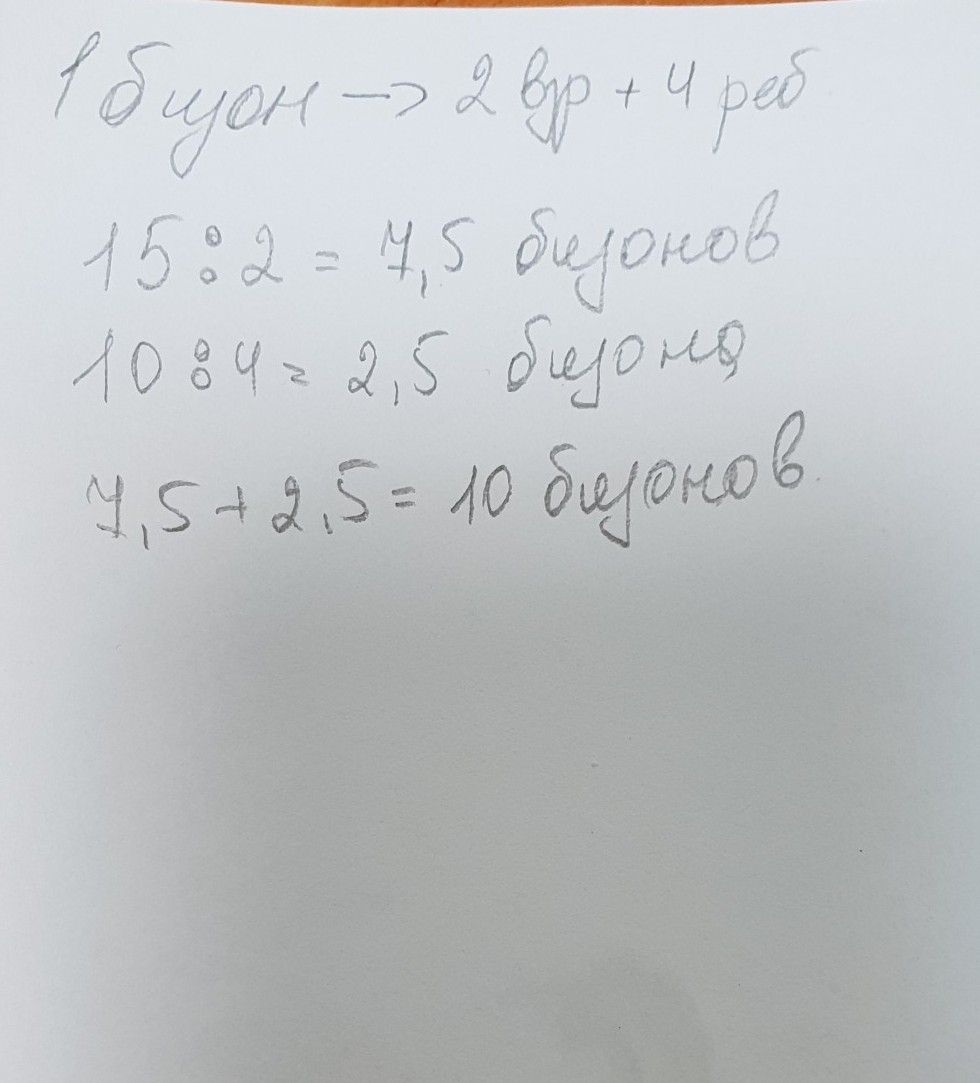 1 бизон -> 2 взр + 4 реб
15:2 = 7,5 бизонов
10:4 = 2,5 бизона
7,5+2,5 = 10 бизонов